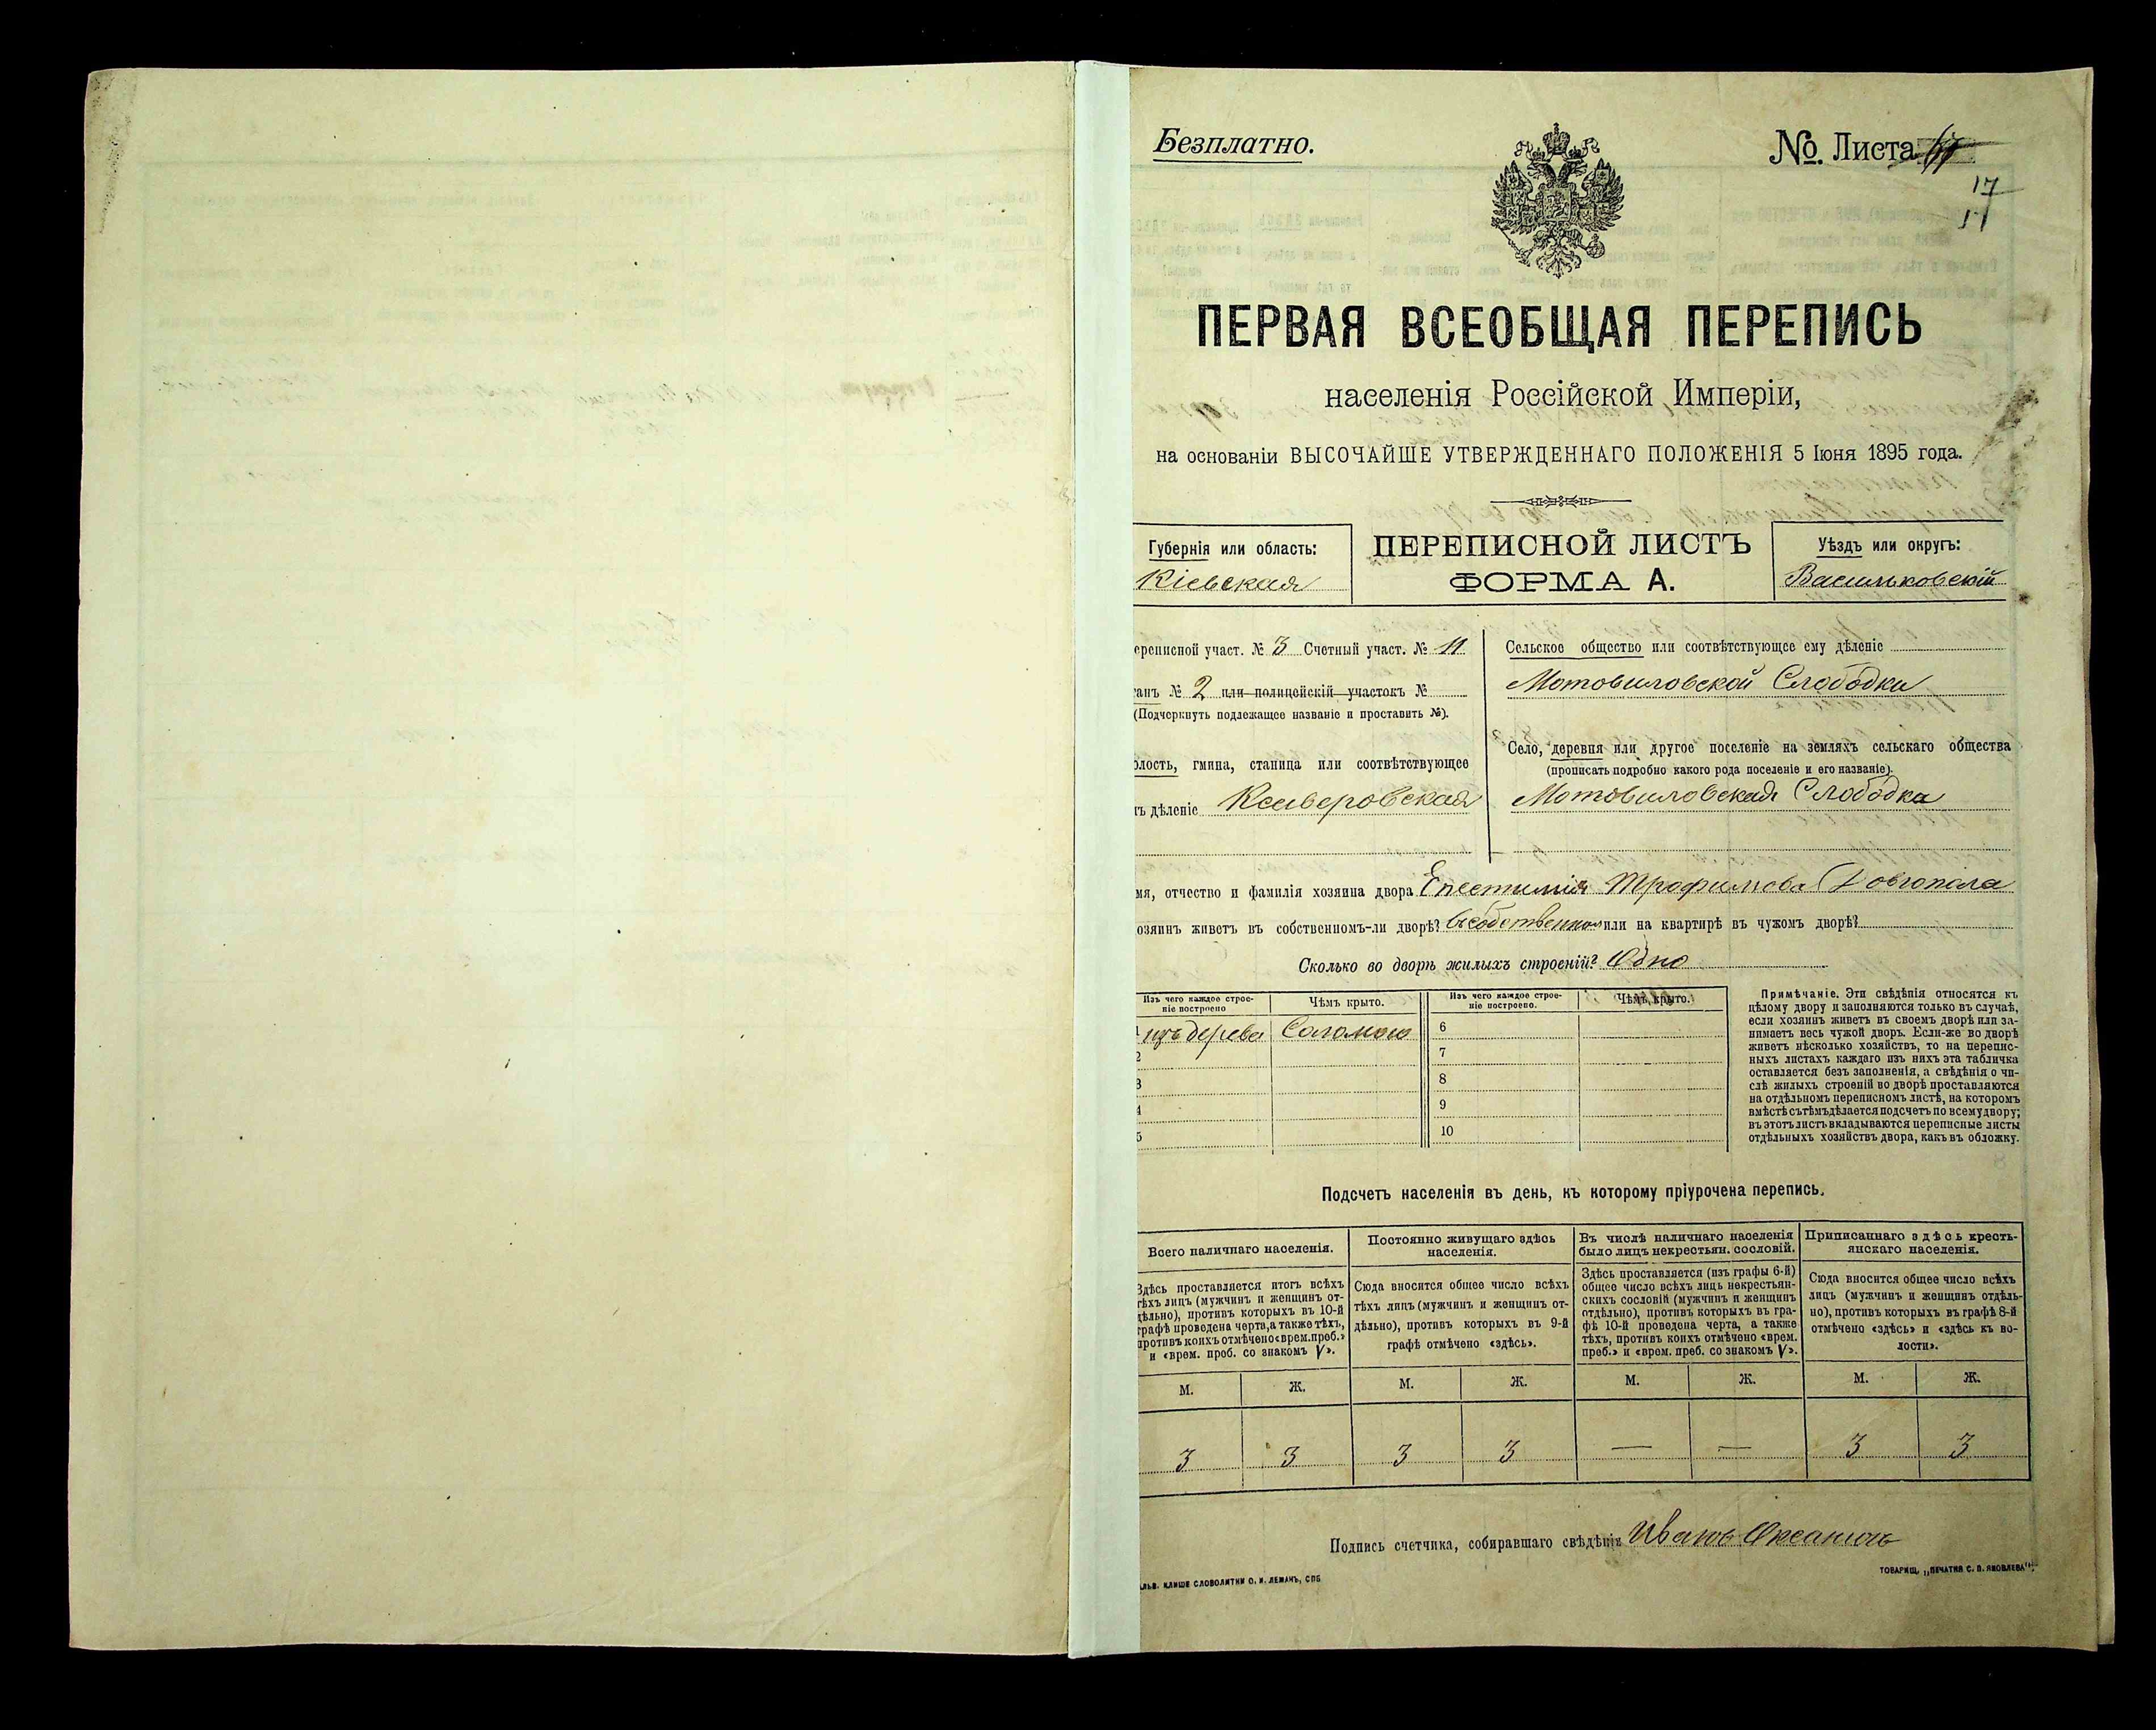 Безплатно.
№. Листа
17
ПЕРВАЯ ВСЕОБЩАЯ ПЕРЕПИСЬ
населенія Россійской Имперіи,
на основаніи ВЫСОЧАЙШЕ УТВЕРЖДЕННАГО ПОЛОЖЕНІЯ 5 Іюня 1895 года.
Губернія или область:
Кіевская
ПЕРЕПИСНОЙ ЛИСТЪ
ФОРМА А.
Уѣздъ или округъ:
Васильковскій
ереписной участ. № 3 Счетный участ. № 11
танъ № 2 или полицейскій участокъ №
(Подчеркнуть подлежащее названіе и проставить №).
олость, гмина, станица или соотвѣтствующее
ъ дѣленіе Ксаверовская
Сельское общество или соотвѣтствующее ему дѣленіе
Мотовиловской Слободки
Село, деревня или другое поселеніе на земляхъ сельскаго общества
(прописать подробно какого рода поселеніе и его названіе).
Мотовиловская Слободка
мя, отчество и фамилія хозяина двора Епестимія Трофимова Довгопола
озяинъ живетъ въ собственномъ-ли дворѣ? Въ собственномъ или на квартирѣ въ чужомъ дворѣ?
Сколько во дворѣ жилыхъ строеній? Одно
Изъ чего каждое строе-
ніе построено
Чѣмъ крыто.
1 изъ дерева Соломою
2
3
4
5
Изъ чего каждое строе-
ніе построено.
Чѣмъ крыто.
6
7
8
9
10
Примѣчаніе. Эти свѣдѣнія относятся къ
цѣлому двору и заполняются только въ случаѣ,
если хозяинъ живетъ въ своемъ дворѣ или за-
нимаетъ весь чужой дворъ. Если-же во дворѣ
живетъ нѣсколько хозяйствъ, то на перепис-
ныхъ листахъ каждаго изъ нихъ эта табличка
оставляется безъ заполненія, а свѣдѣнія о чи-
слѣ жилыхъ строеній во дворѣ проставляются
на отдѣльномъ переписномъ листѣ, на которомъ
вмѣстѣ съ тѣмъ дѣлается подсчетъ по всему двору;
въ этотъ листъ вкладываются переписные листы
отдѣльныхъ хозяйствъ двора, какъ въ обложку.
Подсчетъ населенія въ день, къ которому пріурочена перепись.
Всего наличнаго населенія.
Здѣсь проставляется итогъ всѣхъ
тѣхъ лицъ (мужчинъ и женщинъ от-
дѣльно), противъ которыхъ въ 10-й
графѣ проведена черта, а также тѣхъ,
противъ коихъ отмѣчено «врем. преб.»
и «врем. преб. со знакомъ V».
Постоянно живущаго здѣсь
населенія.
Сюда вносится общее число всѣхъ
тѣхъ лицъ (мужчинъ и женщинъ от-
дѣльно), противъ которыхъ въ 9-й
графѣ отмѣчено «здѣсь».
Въ числѣ наличнаго населенія
было лицъ некрестьян. сословій.
Здѣсь проставляется (изъ графы 6-й)
общее число всѣхъ лицъ некрестьян-
скихъ сословій (мужчинъ и женщинъ
отдѣльно), противъ которыхъ въ гра-
фѣ 10-й проведена черта, а также
тѣхъ, противъ коихъ отмѣчено «врем.
преб.» и «врем. преб. со знакомъ V».
Приписаннаго здѣсь кресть-
янскаго населенія.
Сюда вносится общее число всѣхъ
лицъ (мужчинъ и женщинъ отдѣль-
но), противъ которыхъ въ графѣ 8-й
отмѣчено «здѣсь» и «здѣсь къ во-
лости».
М. Ж. М. Ж. М. Ж. М. Ж.
3 3 3 3 — — 3 3
Подпись счетчика, собиравшаго свѣдѣнія Иванъ
ЛЬВ. КЛИШЕ СЛОВОЛИТНИ О. И. ЛЕМАНЪ, СПБ
ТОВАРИЩ. „ПЕЧАТНЯ С. П. ЯКОВЛЕВА".